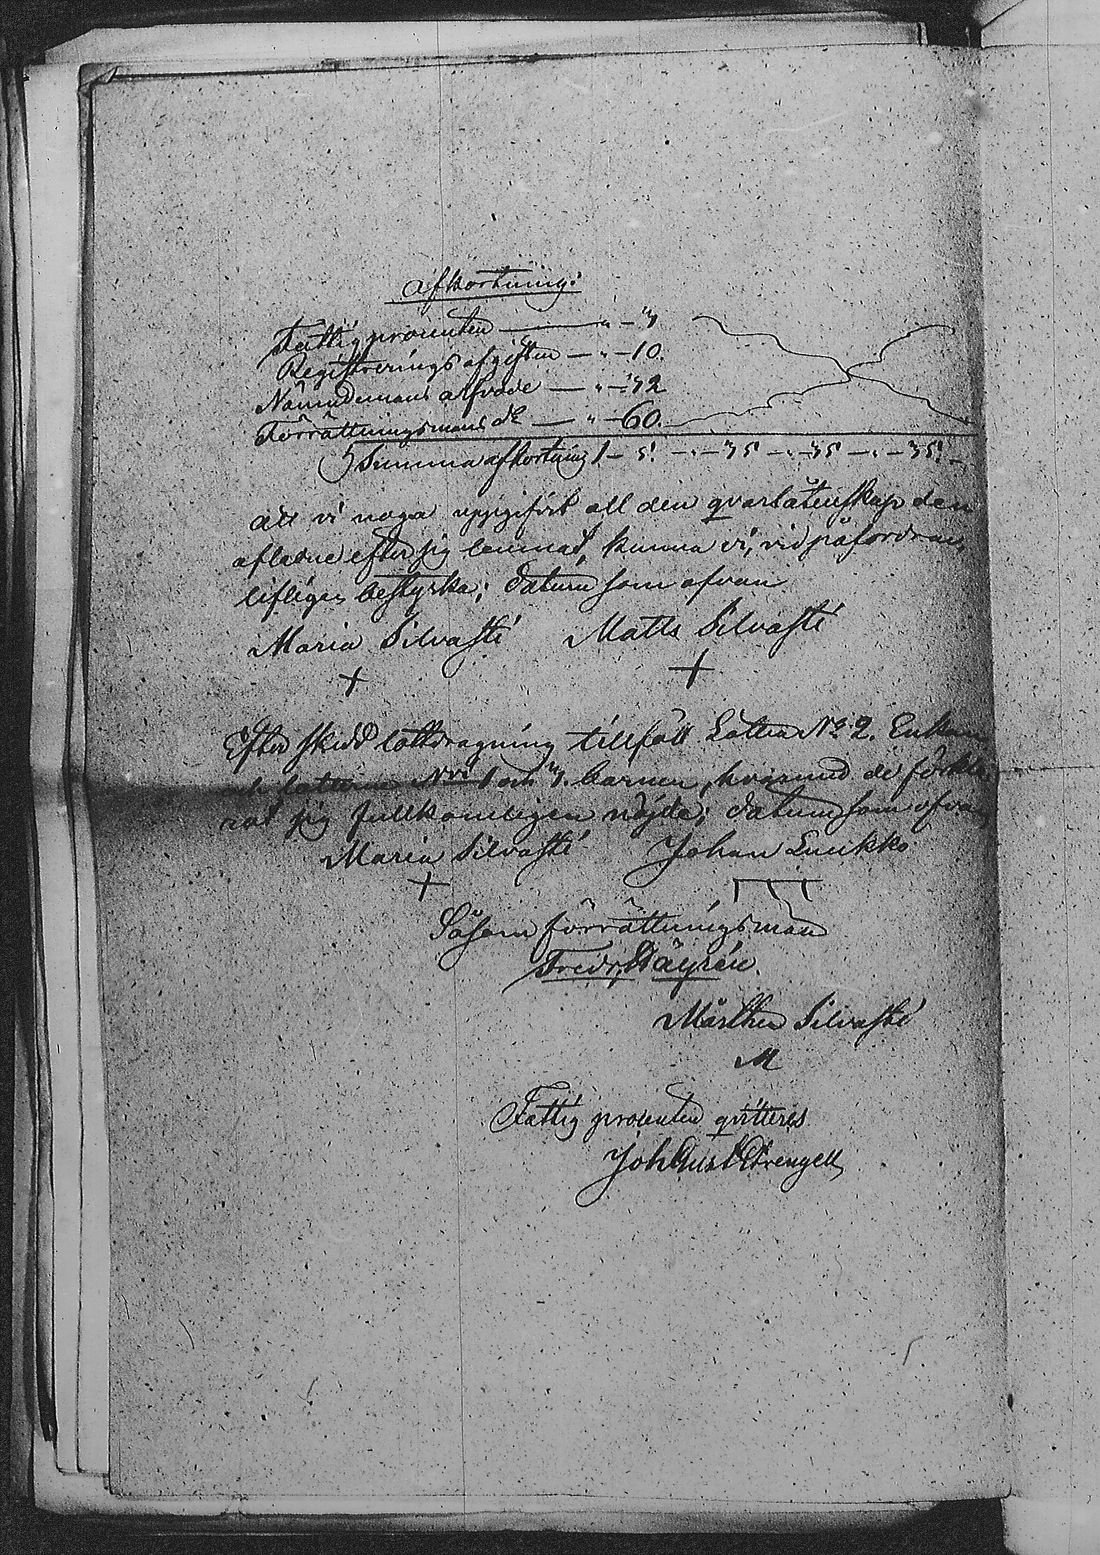 Afkortning:
Fattigprocenten — " — "3
Registrerings afgiften — " — 10.
Nämndemans arfvode — " — 72
Förrättningsmans d:o — " — 60.
Summa afkortning 1 — 5!
att vi noga uppgifvit all den qvarlåtenskap den
aflidne efter sig lemnat, kunna vi, vid påfordran,
lifligen bestyrka; datum som ofvan
Maria Silvasti Matts Silvasti
Efter skedd lottdragning tillföll Lotten No 2. Enkan
lotterne Nris 1 och 3. barnen, hvarmed de förkla-
rat sig fullkomligen nöjde; datum som ofvan
Maria Silvasti Johan Luukko
Såsom förrättningsman
Fredr. Häyrén
Mårthen Silvasti
M
Fattig procenten qvitteras
Joh Gust Strengell